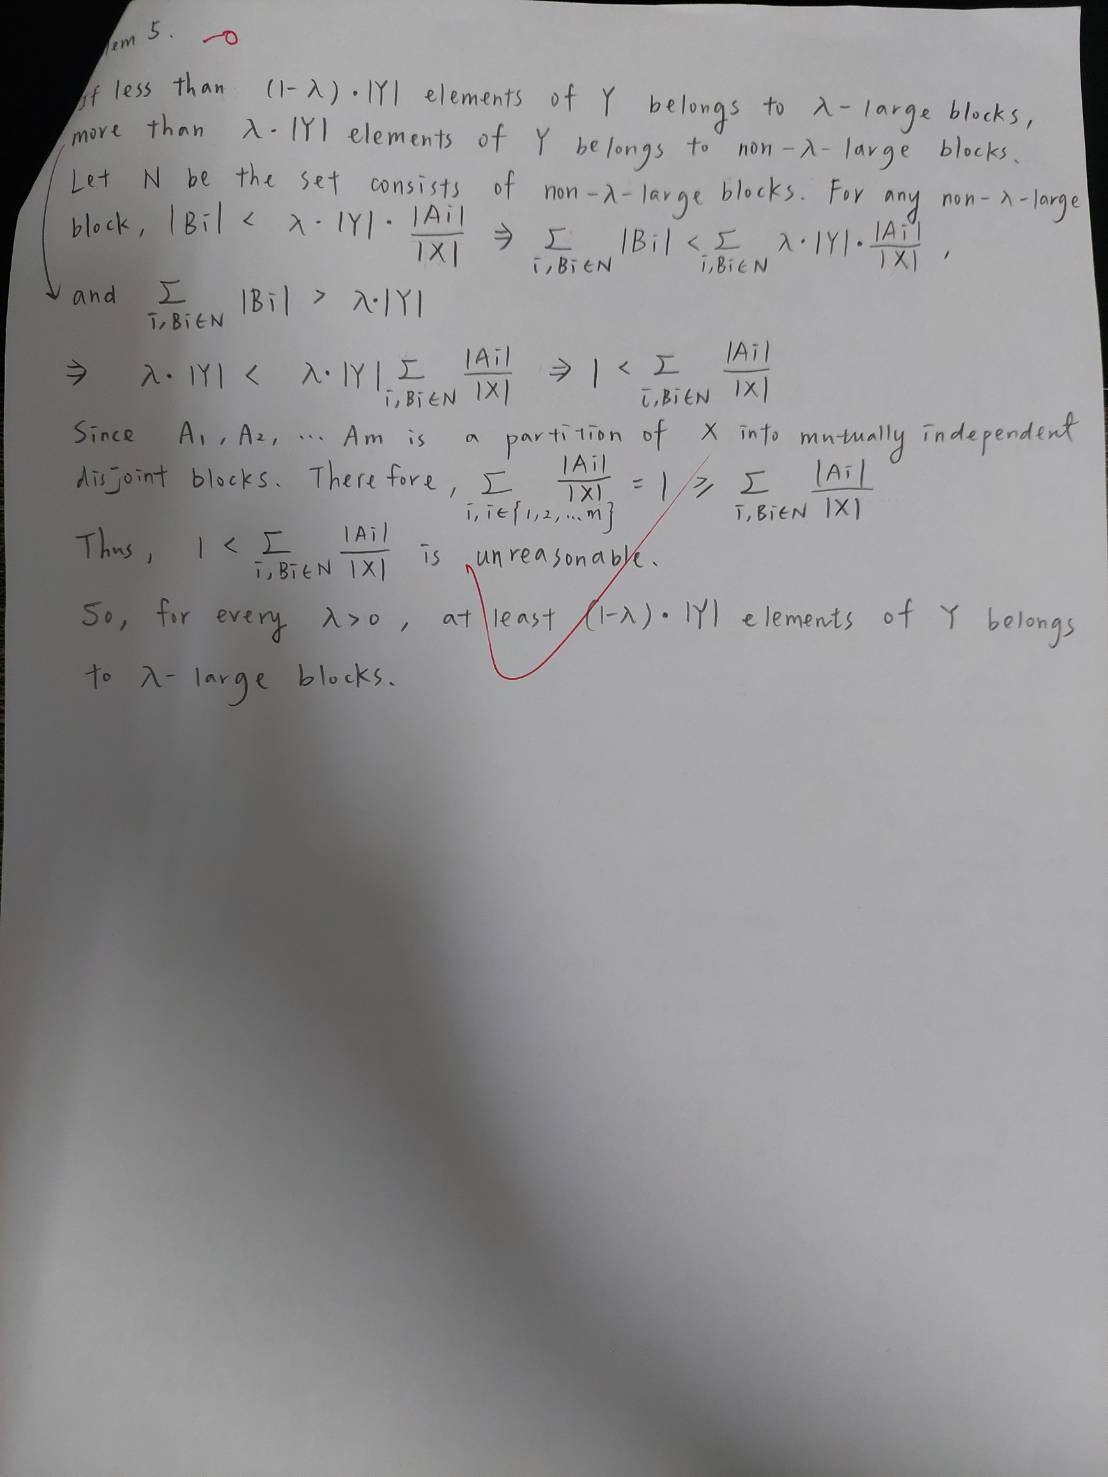 em 5. -0
If less than (1-λ)·|Y| elements of Y belongs to λ-large blocks,
more than λ·|Y| elements of Y belongs to non-λ-large blocks.
Let N be the set consists of non-λ-large blocks. For any non-λ-large
block, |Bi| < λ·|Y|·|Ai|/|X| ⇒ Σ_{i,Bi∈N} |Bi| < Σ_{i,Bi∈N} λ·|Y|·|Ai|/|X|,
and Σ_{i,Bi∈N} |Bi| > λ·|Y|
⇒ λ·|Y| < λ·|Y| Σ_{i,Bi∈N} |Ai|/|X| ⇒ 1 < Σ_{i,Bi∈N} |Ai|/|X|
Since A₁, A₂, ... Am is a partition of X into mutually independent
disjoint blocks. Therefore, Σ_{i,i∈{1,2,...m}} |Ai|/|X| = 1 ≥ Σ_{i,Bi∈N} |Ai|/|X|
Thus, 1 < Σ_{i,Bi∈N} |Ai|/|X| is unreasonable.
So, for every λ>0, at least (1-λ)·|Y| elements of Y belongs
to λ-large blocks.